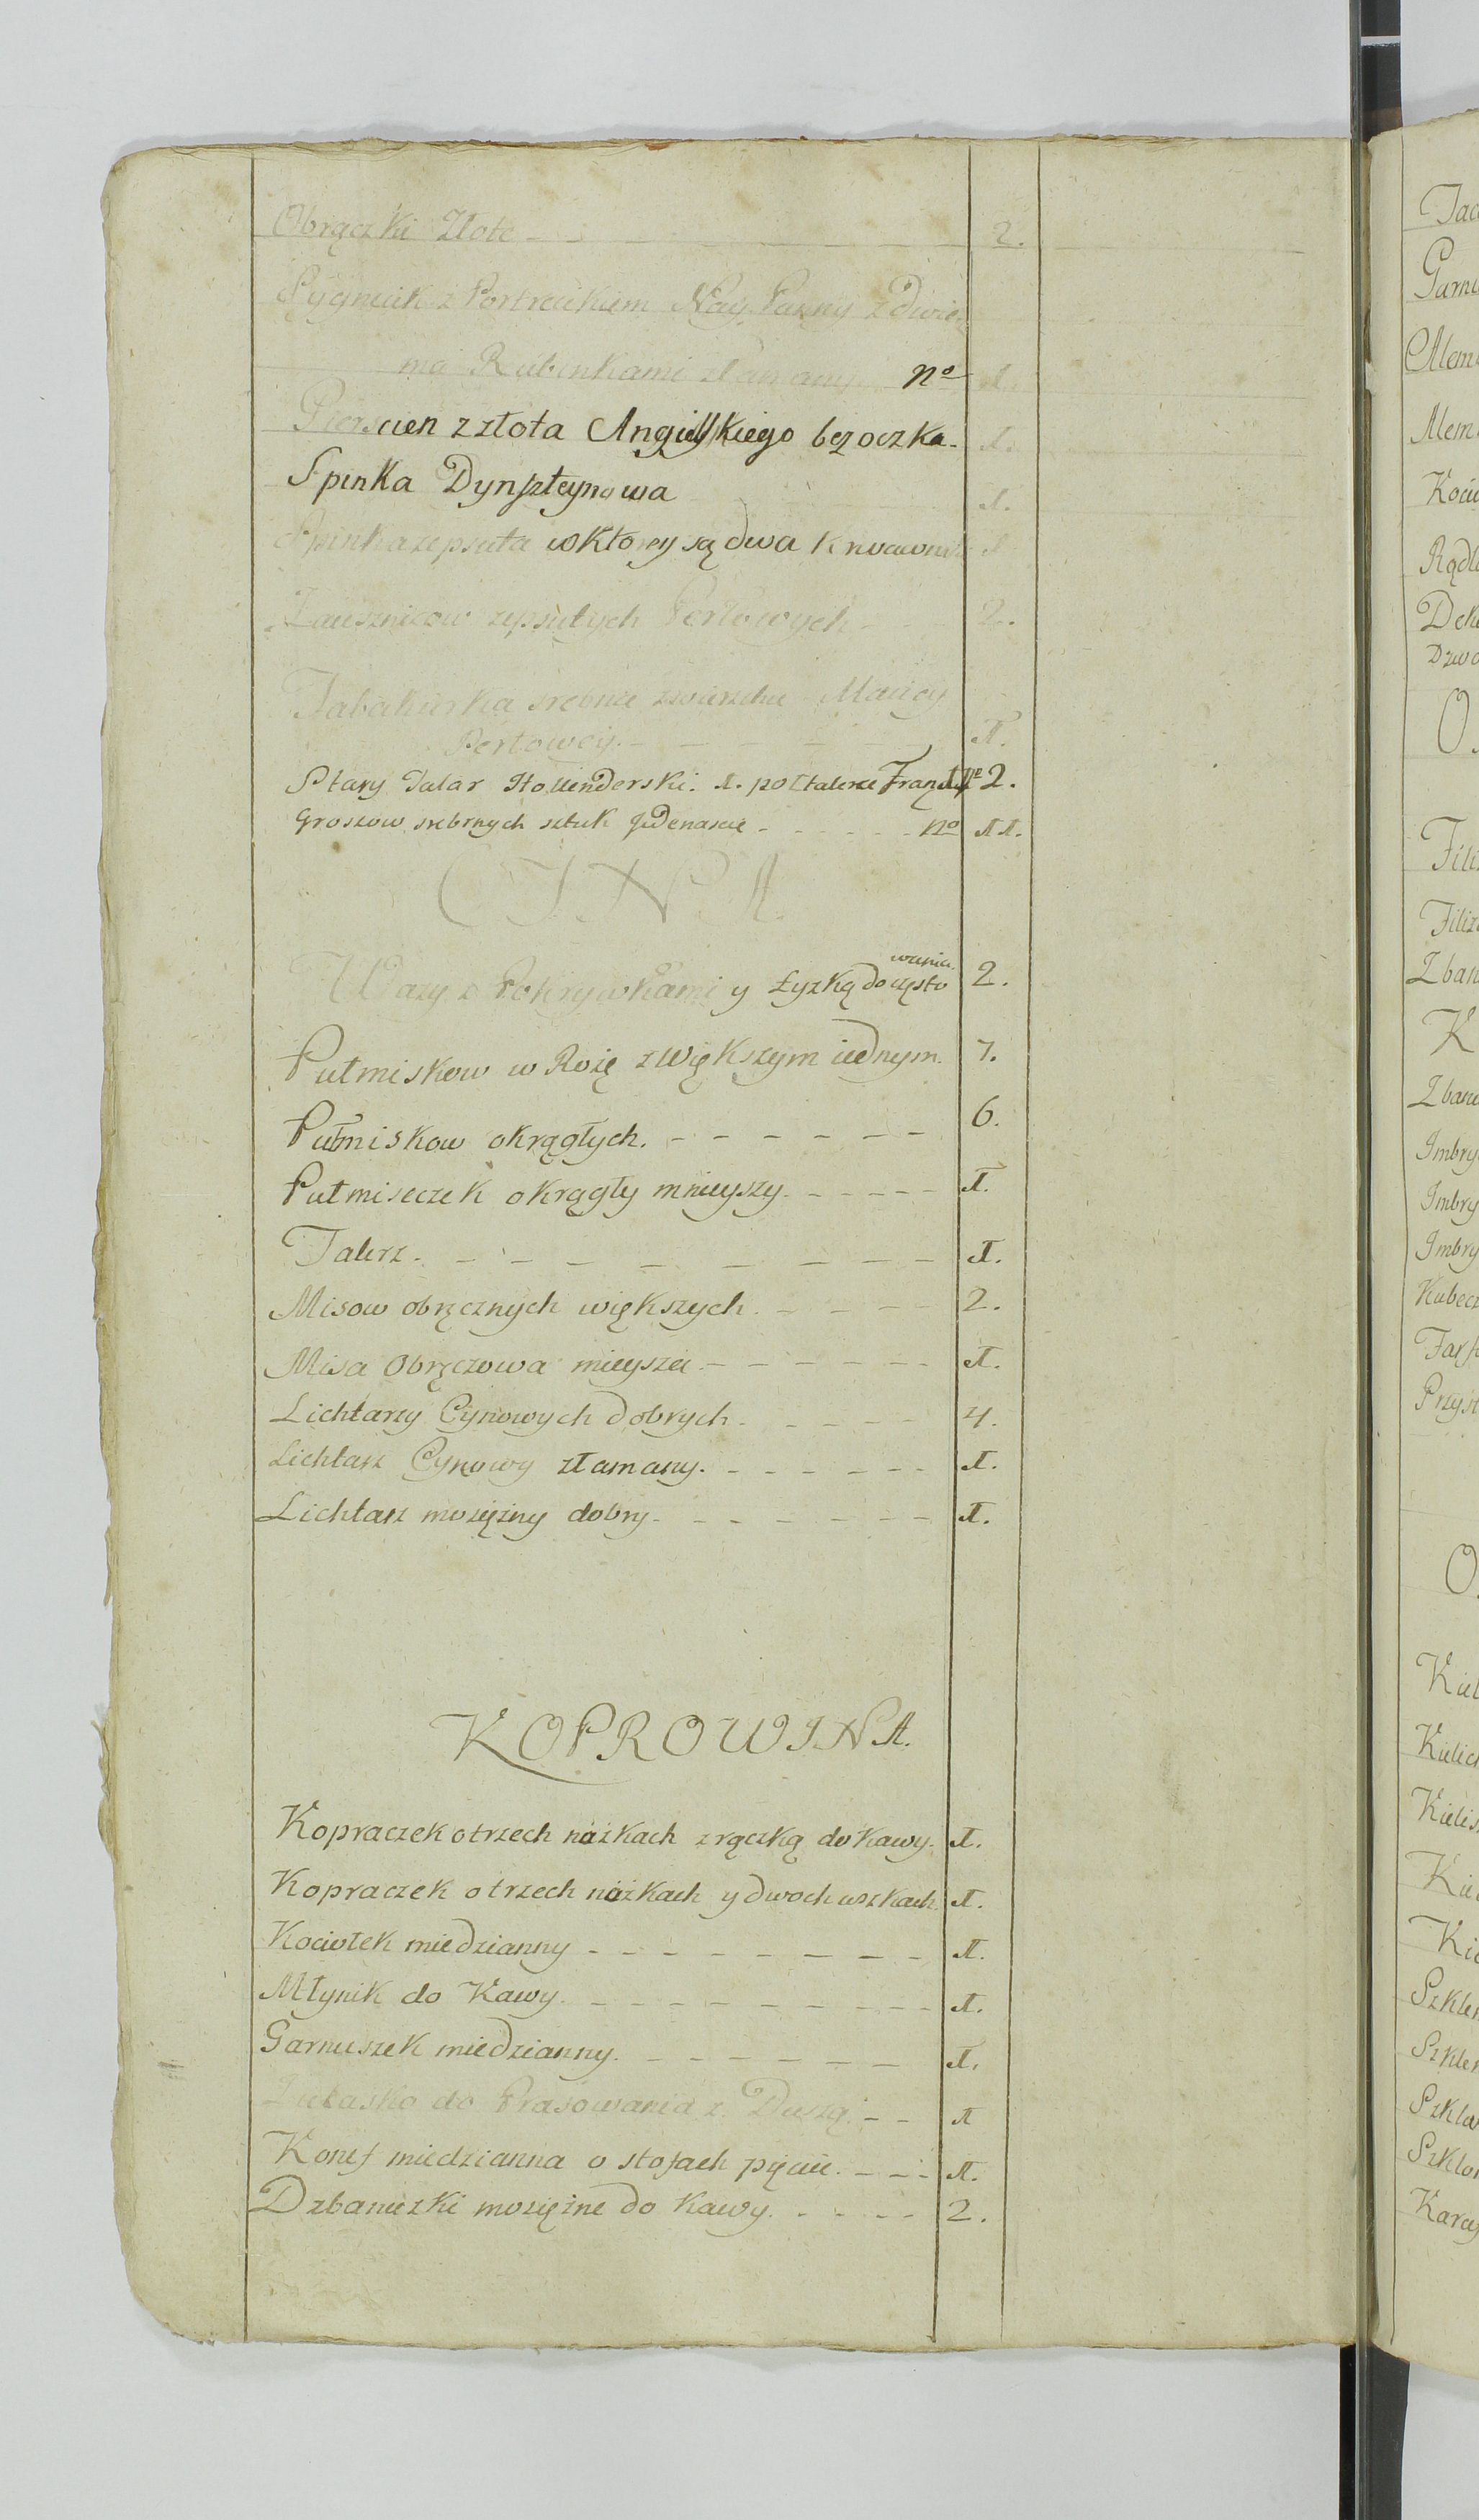 Obrączki Złote - - 2.
z Portrecikiem Nay. Panny z dwie
ma Rubinkami No 1.
Pierscien z złota Angielskiego bez oczka. 1.
Spinka Dynszteynowa 1.
Spinka zepsuta w ktorey są dwa krwawni 1
Zausznicow zepsutych Perłowych - - 2.
Tabakierka srebna zwierzchu Macicy
Perłowey. - - - - - 1.
Stary Talar Hollenderski. 1. połtalerze 2.
Groszow srebrnych sztuk Jedenascie - - - - - No 11.
CYNA.
wania.
Wazy z Pokrywkami y Łyzką do często 2.
Pułmiskow w Rożę z większym iednym. 7.
Pułmiskow okrągłych. - - - - - - 6.
Pułmiseczek okrągły mnieyszy. - - - - - 1.
Talerz. - - - - - - - - 1.
Misow obręcznych większych. - - - - 2.
Misa Obręczowa mieyszei - - - - - - 1.
Lichtarzy Cynowych dobrych. - - - - - 4.
Lichtarz Cynowy złamany. - - - - - - 1.
Lichtarz mosiężny dobry. - - - - - - - 1.
KOPROWINA.
Kopraczek o trzech nożkach z rączką do kawy. 1.
Kopraczek o trzech nożkach y dwoch uszkach. 1.
Kociołek miedzianny - - - - - - - - - 1.
Młynik do Kawy. - - - - - - - - - 1.
Garnuszek miedzianny. - - - - - - - 1.
Żelasko do Prasowania z Duszą. - - 1
Konef miedzianna o stofach pięciu. - - - 1.
Dzbanuszki mosiężne do Kawy. - - - - 2.
Garnu
Alem
Alem
Kocio
Rądl
Dek
Dzwo
O.
Fili
Filiz
Zban
K
Zban
Imbry
Imbry
Imbry
Kubecz
Farf
Przyst
O.
Kiel
Kielich
Kielis
Kie
Kie
Szklen
Szklen
Szklan
Szklon
Karaf